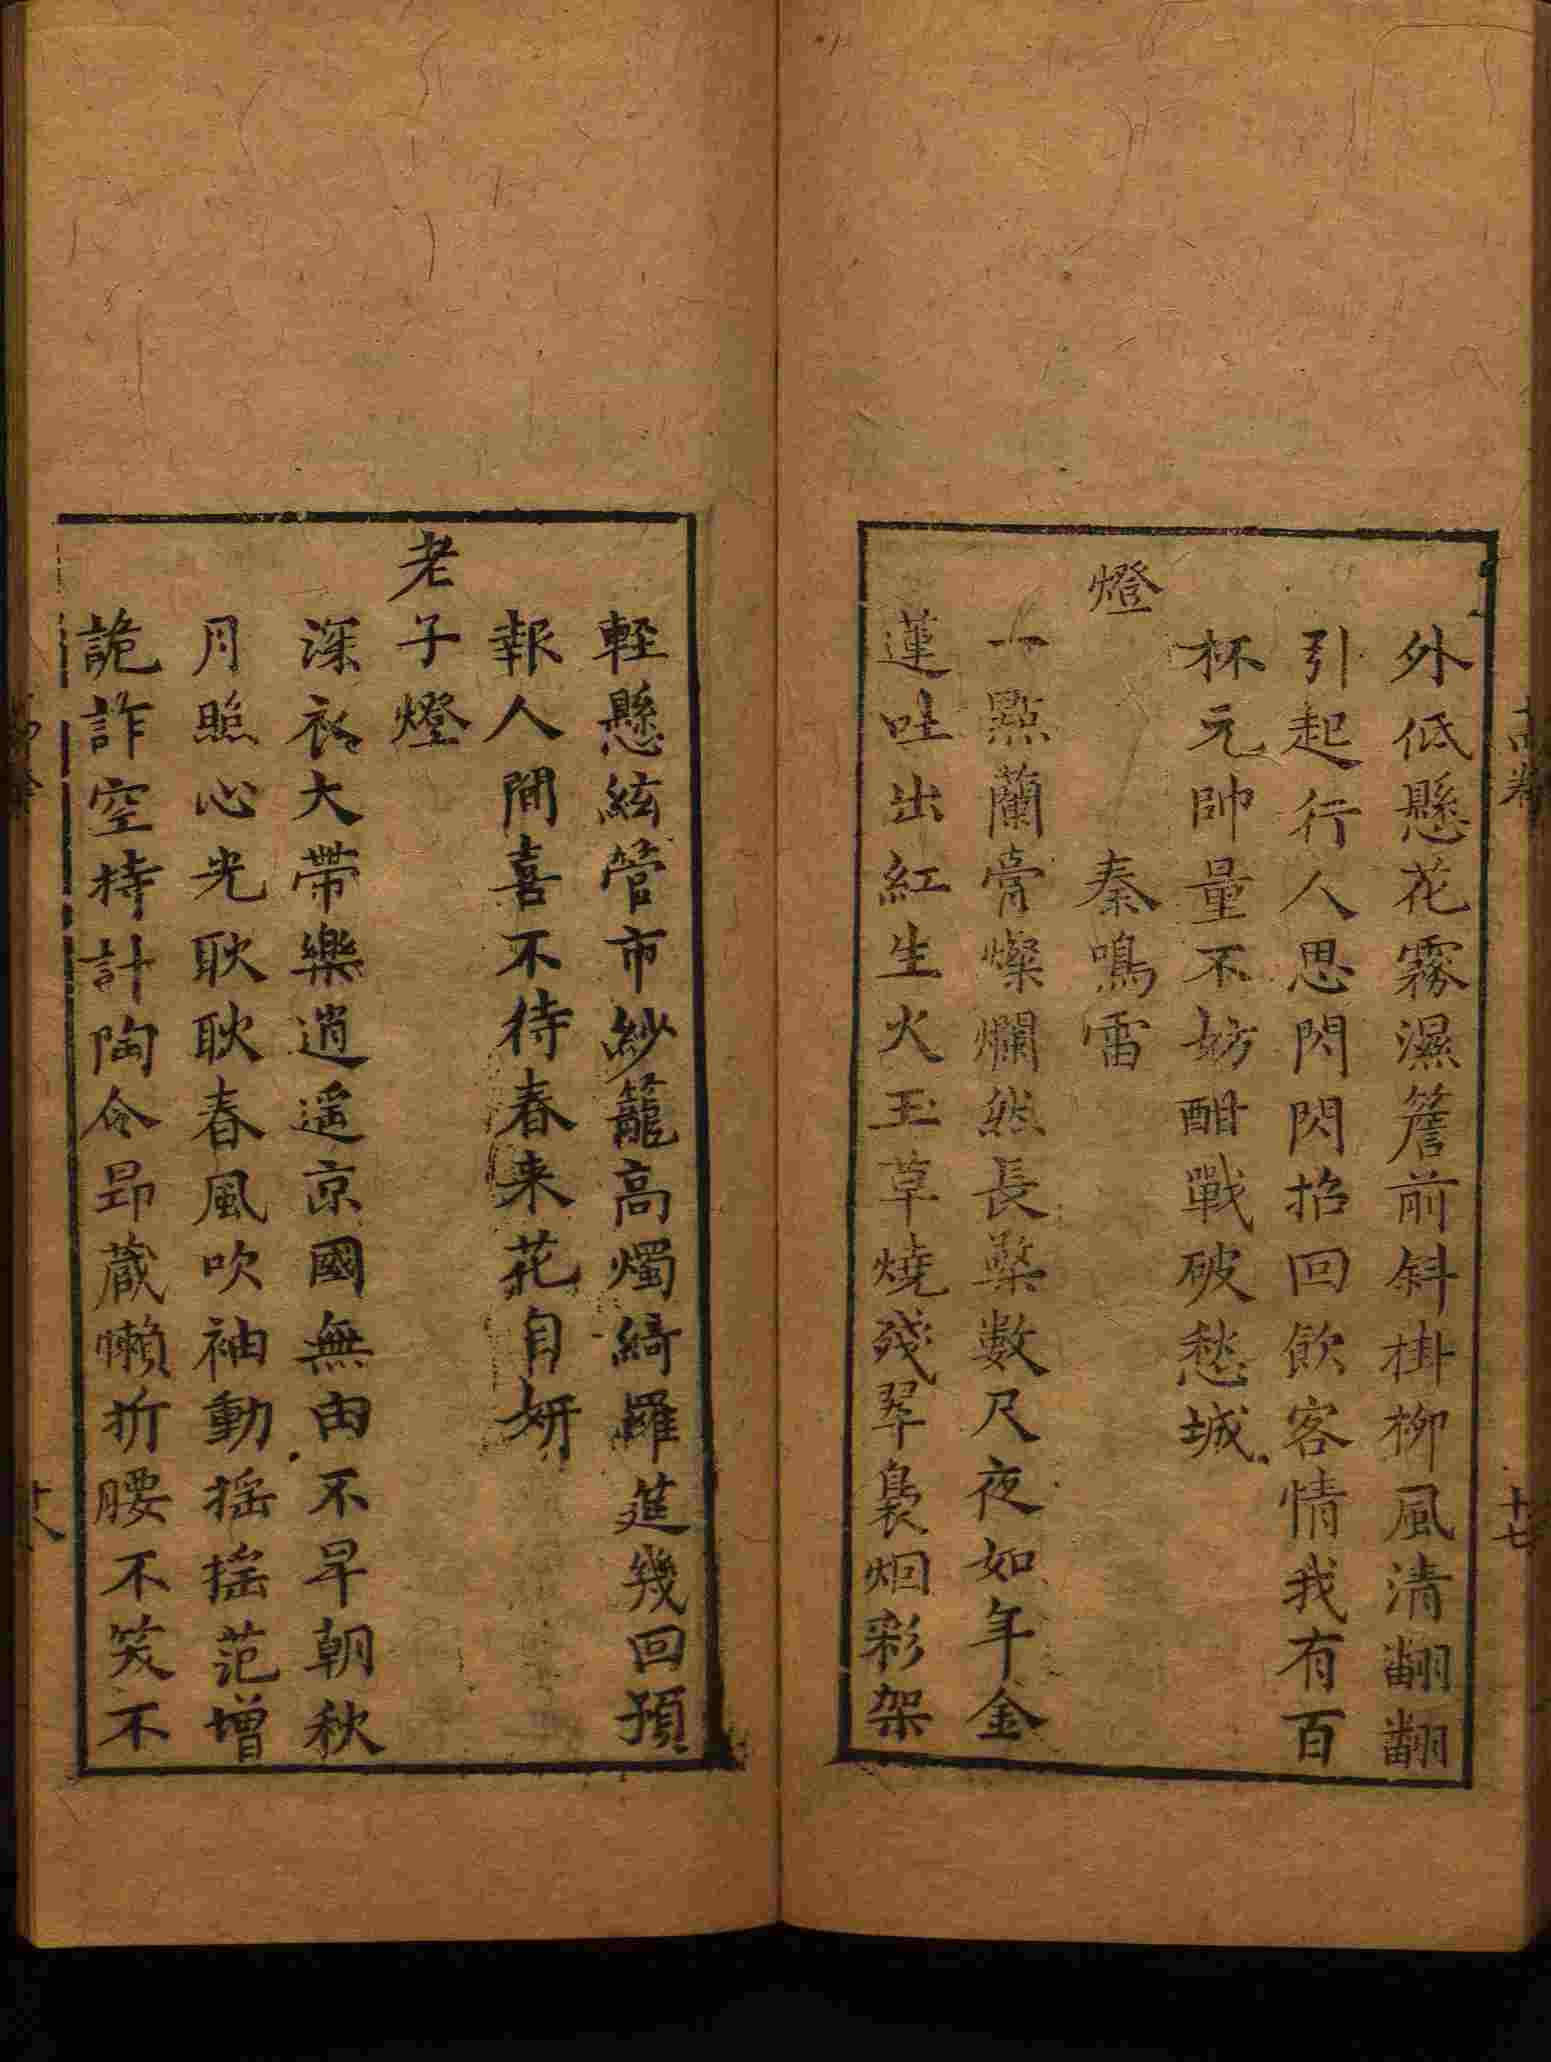 外低懸花霧濕簷前斜掛柳風清翩翩
引起行人思閃閃招回飲客情我有百
杯元帥量不妨酣戰破愁城
燈
秦鳴雷
一點蘭膏燦爛然長檠數尺夜如年金
蓮吐出紅生火玉草燒殘翠裊烟彩架
輕懸絃管市紗籠高燭綺羅筵幾回預
報人間喜不待春来花自妍
老子燈
深衣大帶樂逍遥京國無由不早朝秋
月照心光耿耿春風吹袖動揺揺范增
詭詐空持計陶令昻蔵懶折腰不笑不
十七
十八